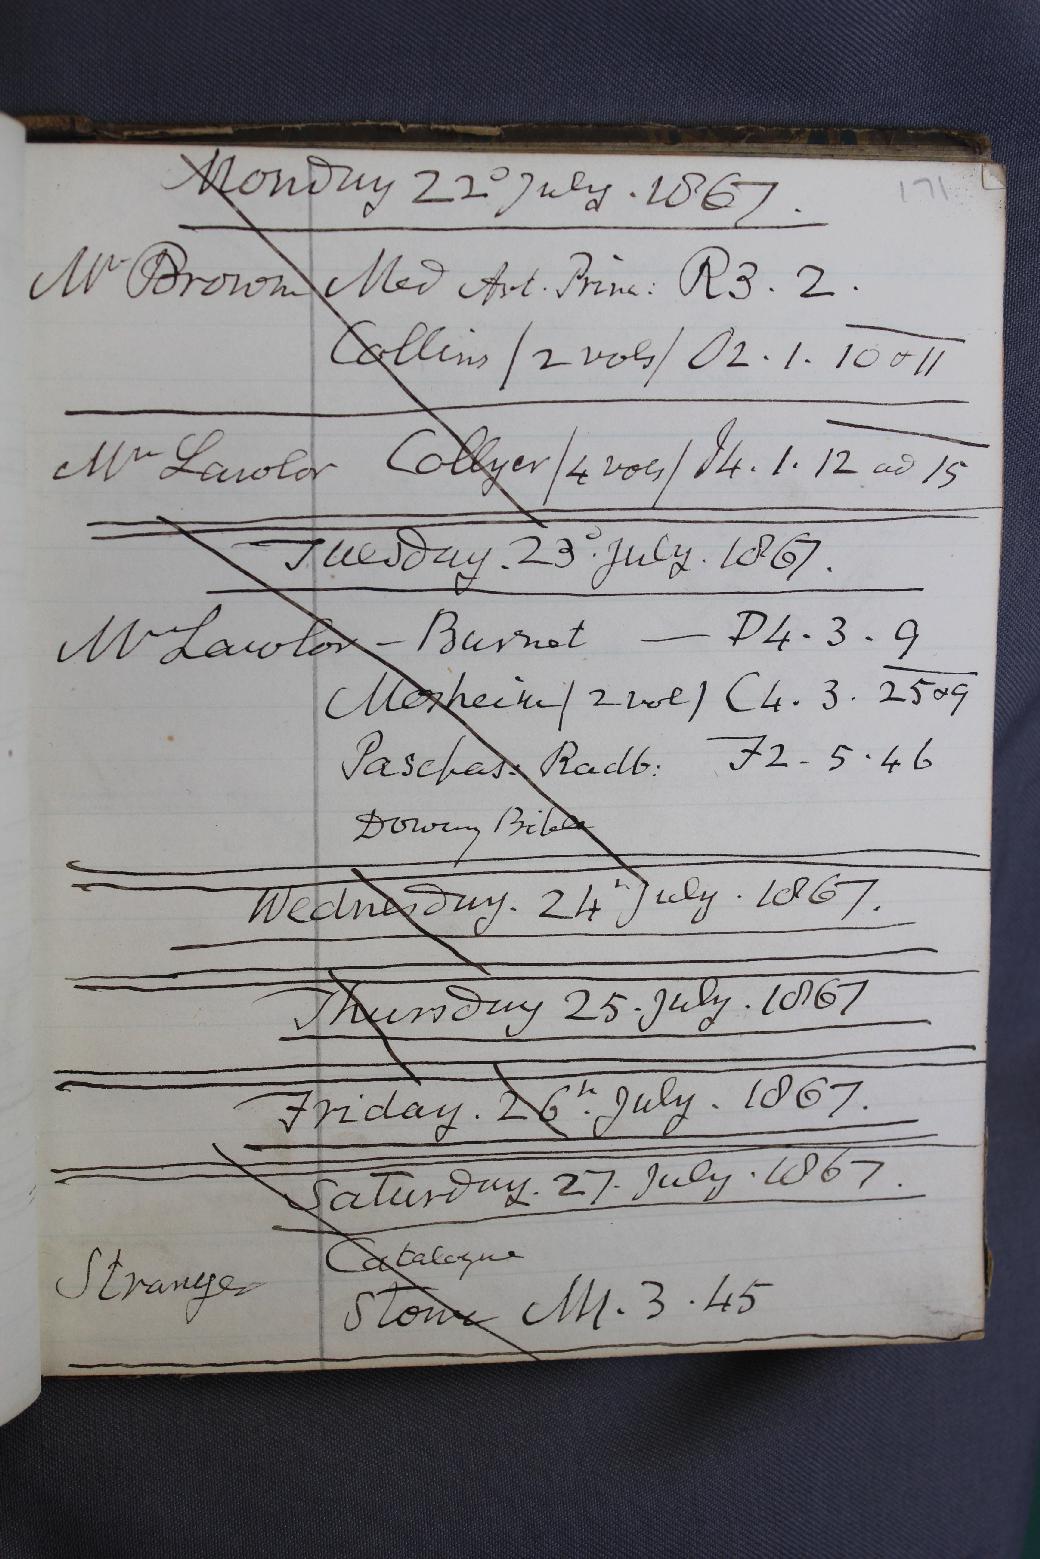 171
Monday 22º July . 1867 .
Mr Brown Med Art. Prin: R3 . 2 .
Collins / 2 vols / O2 . 1 . 10 & 11
Mr Lawlor Collyer / 4 vols / J4 . 1 . 12 ad 15
Tuesday . 23º July . 1867 .
Mr Lawlor - Burnet — D4 . 3 . 9
Mosheim / 2 vol / C4 . 3 . 25 & 9
Paschas: Radb: F2 - 5 . 46
Doway Bible
Wednesday . 24th July . 1867 .
Thursday 25 . July . 1867
Friday . 26th . July . 1867 .
Saturday . 27 . July . 1867 .
Catalogue
Stranger Stowe . 3 . 45